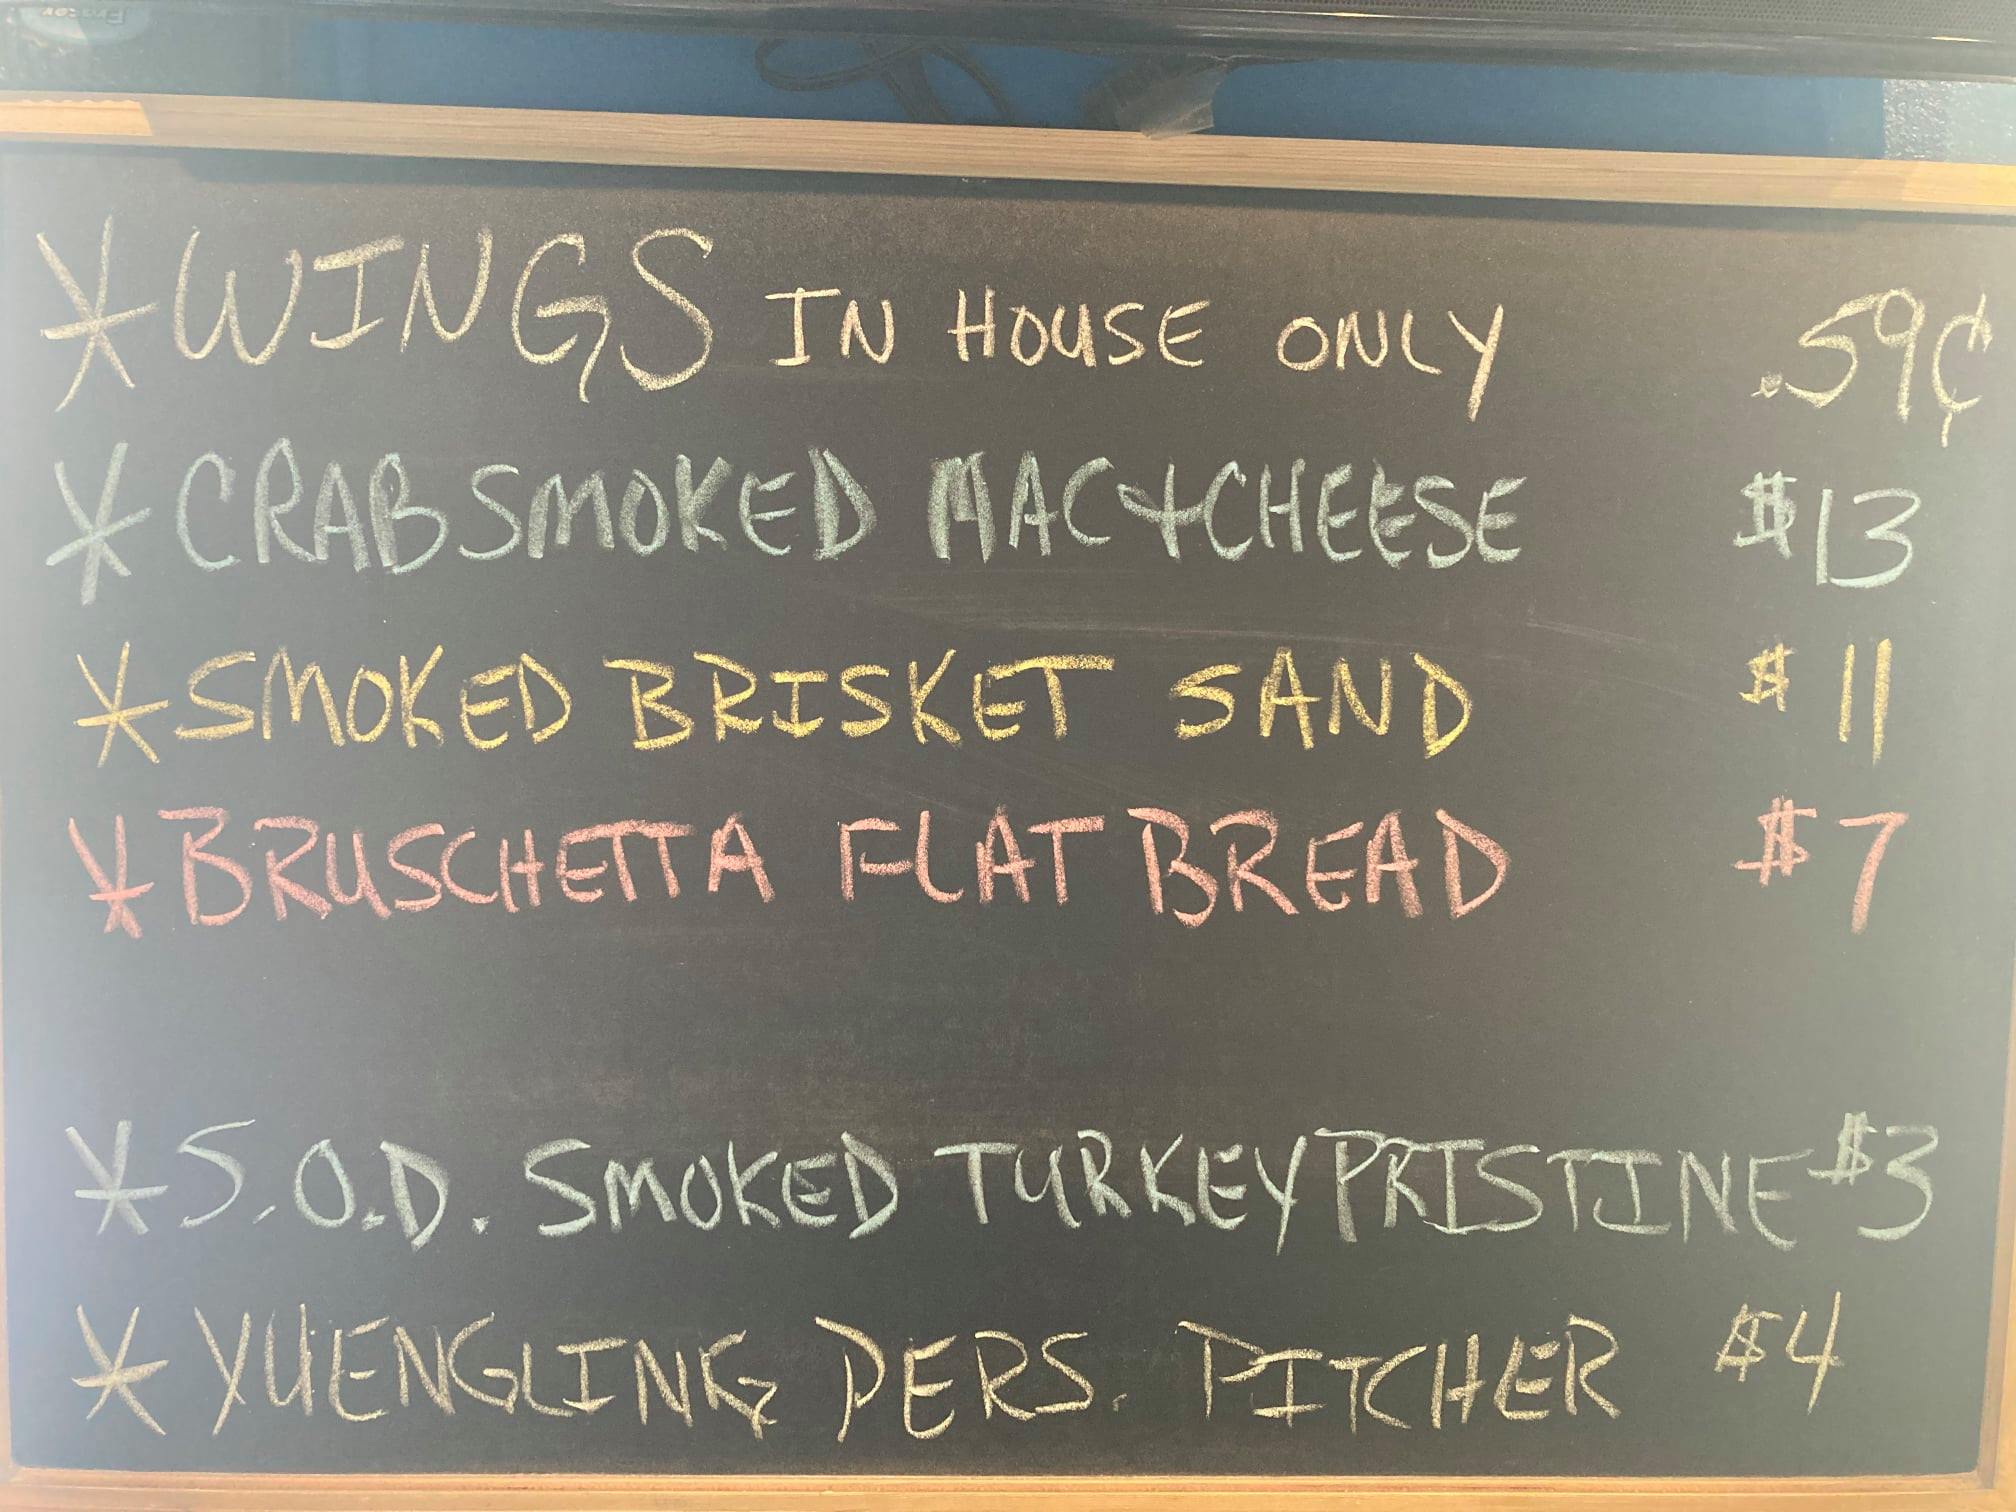 * WINGS IN HOUSE ONLY .59¢
* CRAB SMOKED MAC & CHEESE $13
* SMOKED BRISKET SAND $11
* BRUSCHETTA FLAT BREAD $7
* S.O.D. SMOKED TURKEY PRISTINE $3
* YUENGLING PERS. PITCHER $4